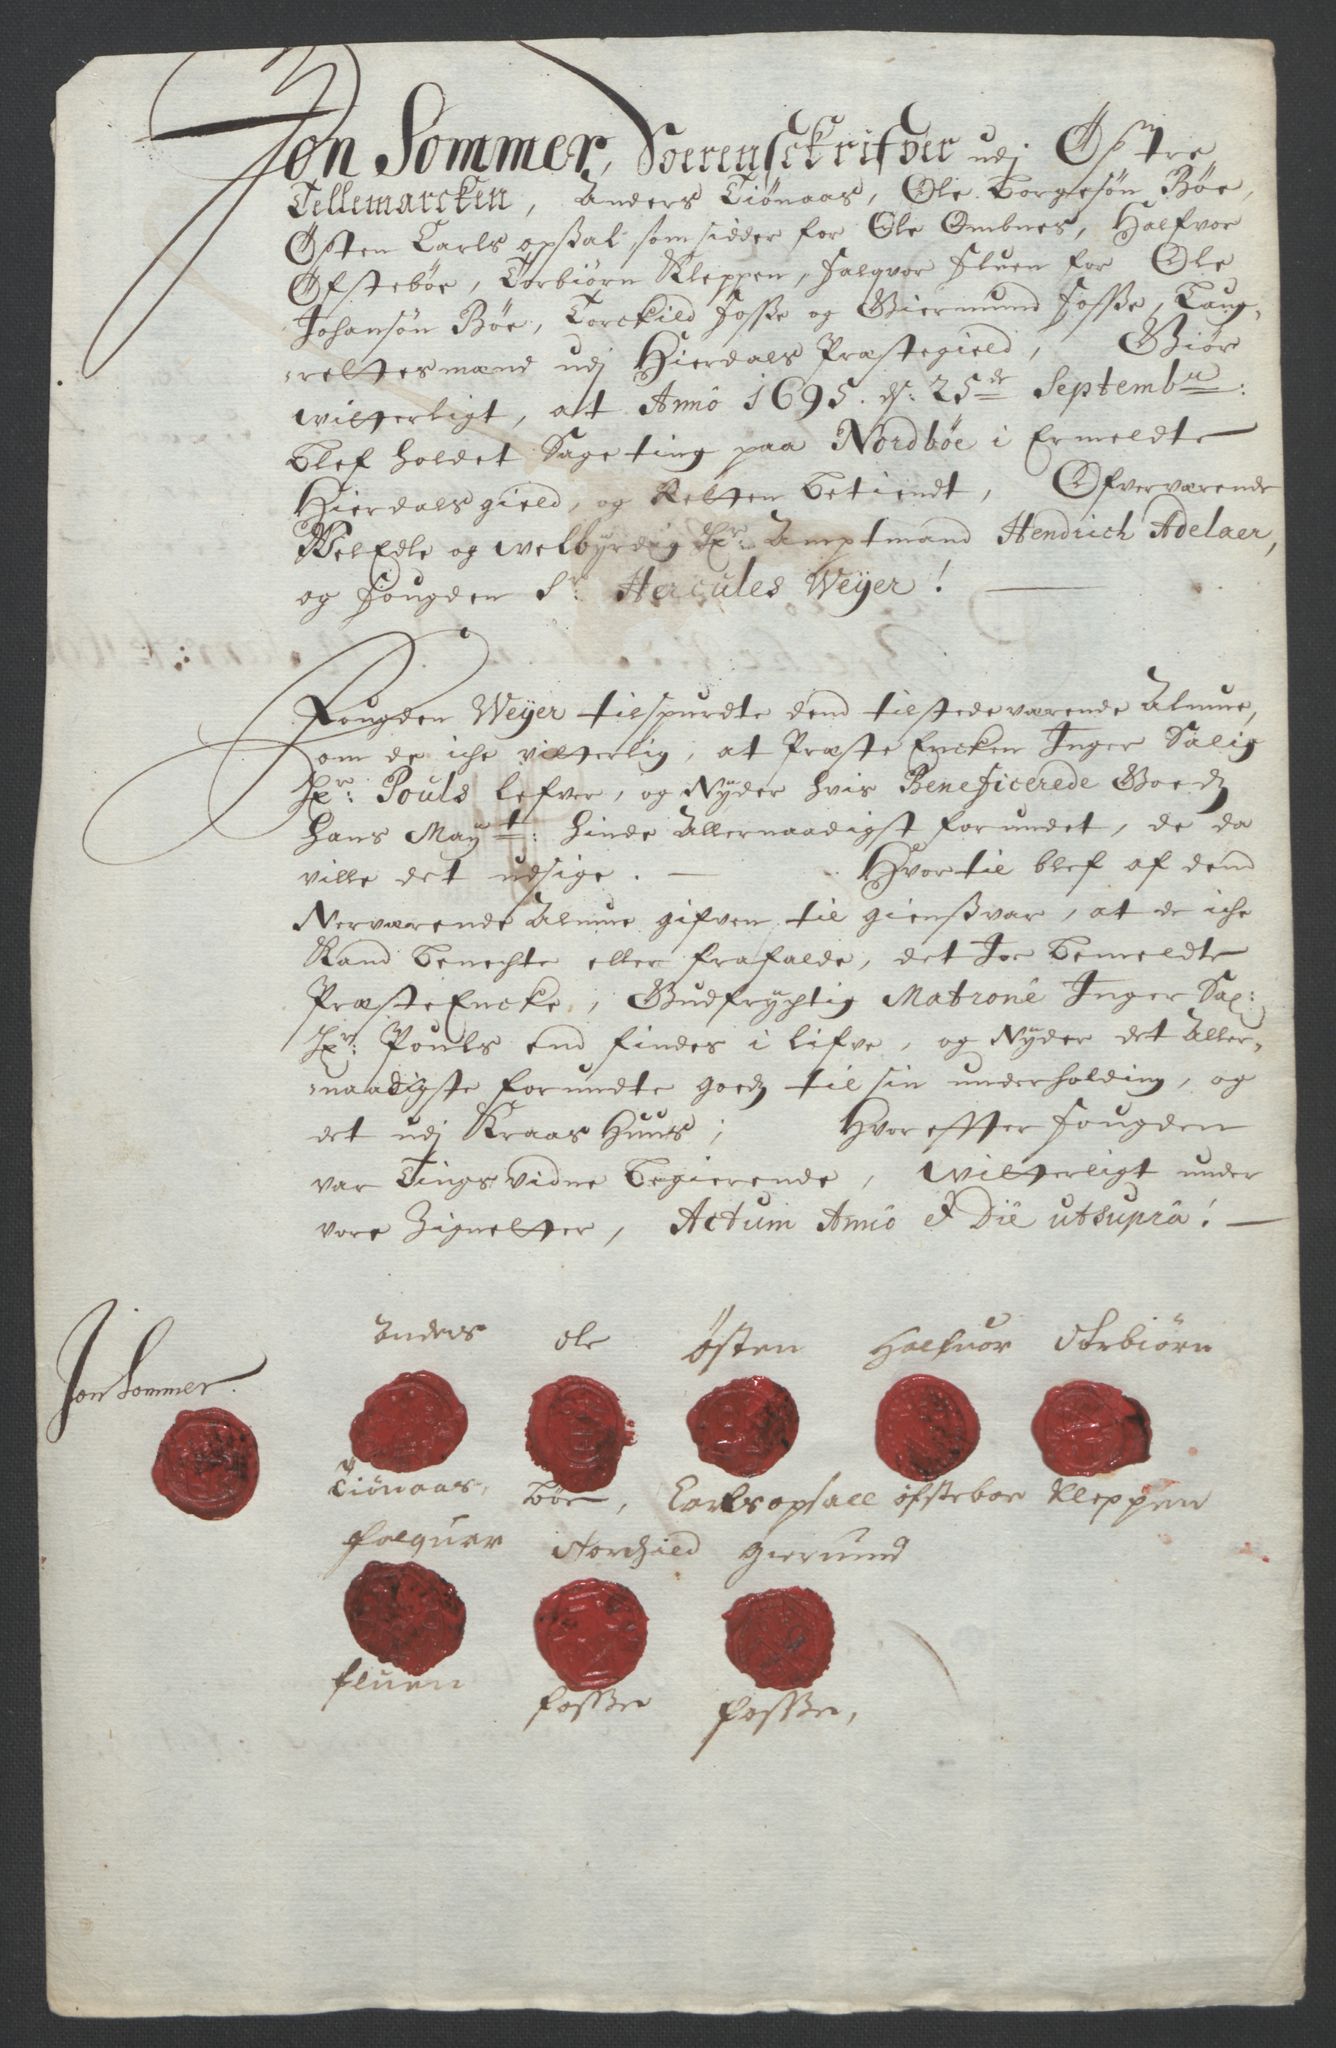 Jon Sommer, Soerenschrifver udj Østre
Tellemarcken, Anders Tiönaas, Ole Torgersön Böe,
Østen Carls opsal som sidder for Ole Ombnes, Halfvor
Øfstebøe, Torbiörn Kleppen, Falqvor Fluen for Ole
Johansön Böe, Torckild Fosse og Giermund Fosse, Laug-
rettesmænd udj Hierdals Præstegield, Giör
witterligt, at Anno 1695. d: 25de Septembr:
blef holdet Sageting paa Nordböe i Ermeldte
Hierdals gield, og Retten betiendt, Ofverværende
WelEdle og welbyrdig Hr: Amptmand Hendrich Adelaer,
og Fougden Sr: Hercules Weyer!
Fougden Weyer tilspurdte dend tilstedeværende Almue,
om de iche vitterlig, at Præste Encken Inger Salig
Hr: Pouls lefver, og Nyder hvis Beneficerede Goedz
Hans Mayt: hinde Allernaadigst forundet, de da
ville det udsige. Hvortil blef af dend
Nerværende Almue gifven til giensvar, at de iche
Kand benechte eller frafalde, det Jo bemeldte
Præste Encke, Gudfrychtig Matrone Inger Sal:
Hr: Pouls end findes i lifve, og Nyder det Aller-
naadigste forundte goedz til sin underholding, og
det udj Kraas Huus; Hvorefter Fougden
var Tings vidne begierende, Witterligt under
vore Zignetter, Actum Anno & Die utsupra!
Anders ole østen Halfuor Torbiörn
Jon Sommer.
Tiönaas, Böe, Carlsopsall öfsteboe Kleppen
falquor Torchild giermund
fluen fosse fosse,